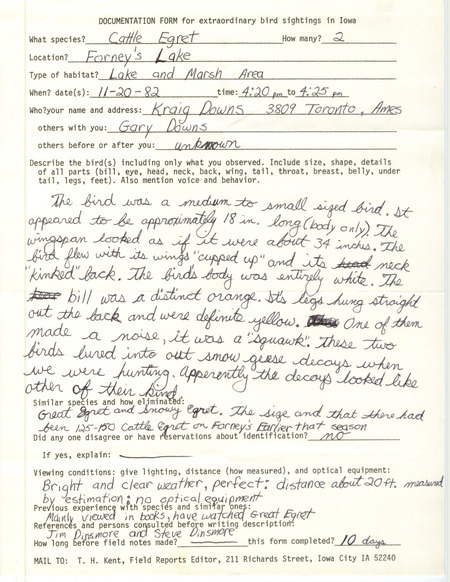 DOCUMENTATION FORM for extraordinary bird sightings in Iowa
What species? Cattle Egret How many? 2
Location? Forney's Lake
Type of habitat? Lake and Marsh Area
When? date(s): 11-20-82 time: 4:20 pm to 4:25 pm
Who?your name and address: Kraig Downs 3809 Toronto, Ames
others with you: Gary Downs
others before or after you: unknown
Describe the bird(s) including only what you observed. Include size, shape, details
of all parts (bill, eye, head, neck, back, wing, tail, throat, breast, belly, under
tail, legs, feet). Also mention voice and behavior.
The bird was a medium to small sized bird. It
appeared to be approximately 18 in. long (body only). The
wingspan looked as if it were about 34 inches. The
bird flew with its wings "cupped up" and its head neck
"kinked" back. The birds body was entirely white. The
bill was a distinct orange. It's legs hung straight
out the back and were definite yellow. One of them
made a noise, it was a "squawk". These two
birds lured into out snow geese decoys when
we were hunting. Apparently the decoys looked like
other of their kind
Similar species and how eliminated:
Great Egret and Snowy Egret. The size and that there had
been 125-150 Cattle Egret on Forney's Earlier that season
Did any one disagree or have reservations about identification? no
If yes, explain:
Viewing conditions: give lighting, distance (how measured), and optical equipment:
Bright and clear weather, perfect; distance about 20 ft. measured
by estimation; no optical equipment
Previous experience with species and similar ones:
Mainly viewed in books, have watched Great Egret
References and persons consulted before writing description:
Jim Dinsmore and Steve Dinsmore
How long before field notes made? this form completed? 10 days
MAIL TO: T. H. Kent, Field Reports Editor, 211 Richards Street, Iowa City IA 52240